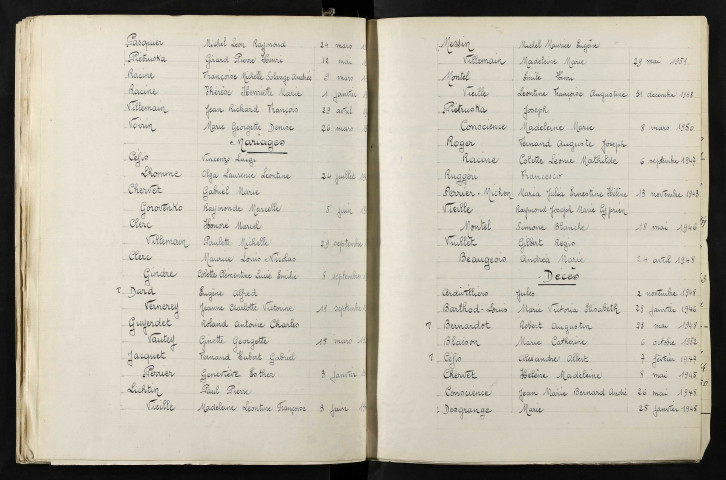 Pasquier Michel Léon Raymond 24 mars
Pietruska Gérard Pierre Henri 12 mai
Racine Françoise Michelle Solange Andrée 9 mars
Racine Thérèse Henriette Marie 1 janvier
Villemain Jean Richard François 29 avril
Voirin Marie Georgette Denise 26 mars
Mariages
Céfis Vincenzo Luigi
Lhomme Olga Laurence Léontine 24 juillet
Chervet Gabriel Marie
Gorovenko Raymonde Marcelle 5 juin
Clerc Honoré Marcel
Villemain Paulette Michelle 29 septembre
Clerc Maurice Louis Nicolas
Girdre Colette Clémentine Lucie Emilie 8 septembre
Dard Eugène Alfred
Vernerey Jeanne Charlotte Victorine 11 septembre
Guyerdet Roland Antoine Charles
Vautey Ginette Georgette 13 mars
Jacquet Fernand Hubert Gabriel
Perrier Geneviève Esther 3 janvier
Lichtin Paul Pierre
Vieille Madeleine Léontine Françoise 3 juin
Messin Michel Maurice Eugène
Villemain Madeleine Marie 29 mai 1951
Montel Emile Henri
Vieille Léontine Françoise Augustine 31 décembre 1948
Pietruska Joseph
Conscience Madeleine Marie 8 mars 1950
Roger Fernand Auguste Joseph
Racine Colette Léonie Mathilde 6 septembre 1947
Ruggeri Francesco
Perrier-Michon Maria Julia Ernestine Hélène 13 novembre 1943
Vieille Raymond Joseph Marie
Montel Simone Blanche 18 mai 1946
Vuillet Gilbert Régis
Beaugeois Andréa Marie 24 avril 1948
Décès
Ardivilliers Jules 2 novembre 1948
Barthod-Louis Marie Victoria Elisabeth 23 janvier 1946
Bernardot Robert Augustin 28 mai 1948
Blaison Marie Catherine 6 octobre 1952
Céfis Alexandre Albert 7 février 1947
Chervet Hélène Madeleine 8 mai 1948
Conscience Jean Marie Bernard André 26 mai 1948
Desgrange Marie 25 janvier 1948